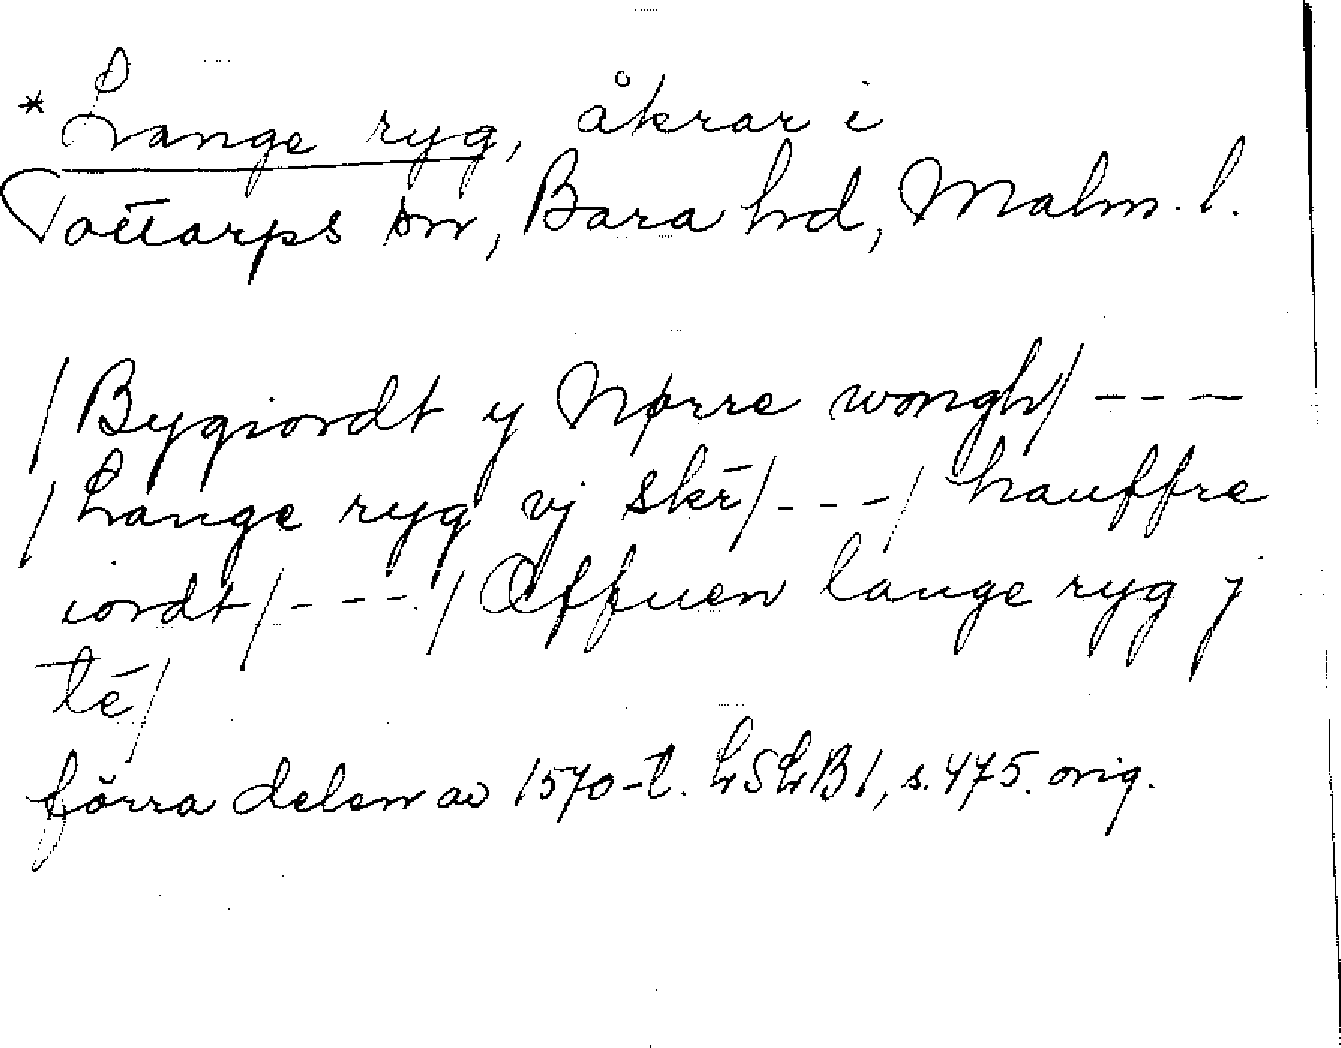 * Lange ryg, åkrar i
Tottarps sn, Bara hd, Malm. l.
/Bygiordt y Nørre wongh/ - - -
/Lange ryg vj skr̄/ - - - / hauffre
iordt/ - - - - / Offuen lange ryg j
té/
förra delen av 1570-t. LSLB 1, s. 475. orig.